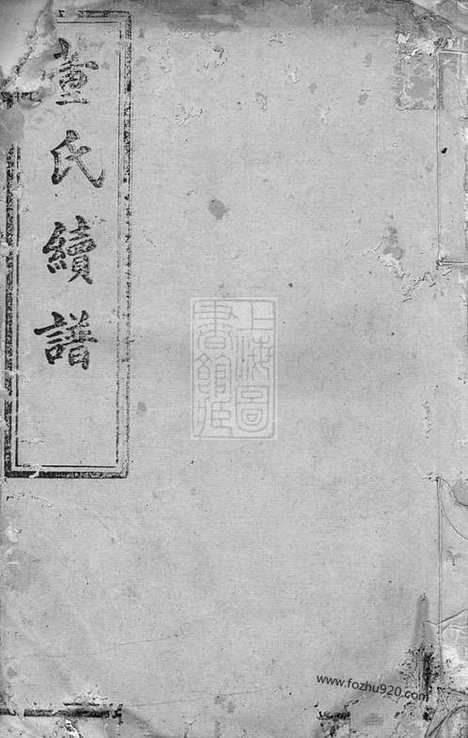 董氏續譜
上海圖
書館藏
www.fozhu920.com